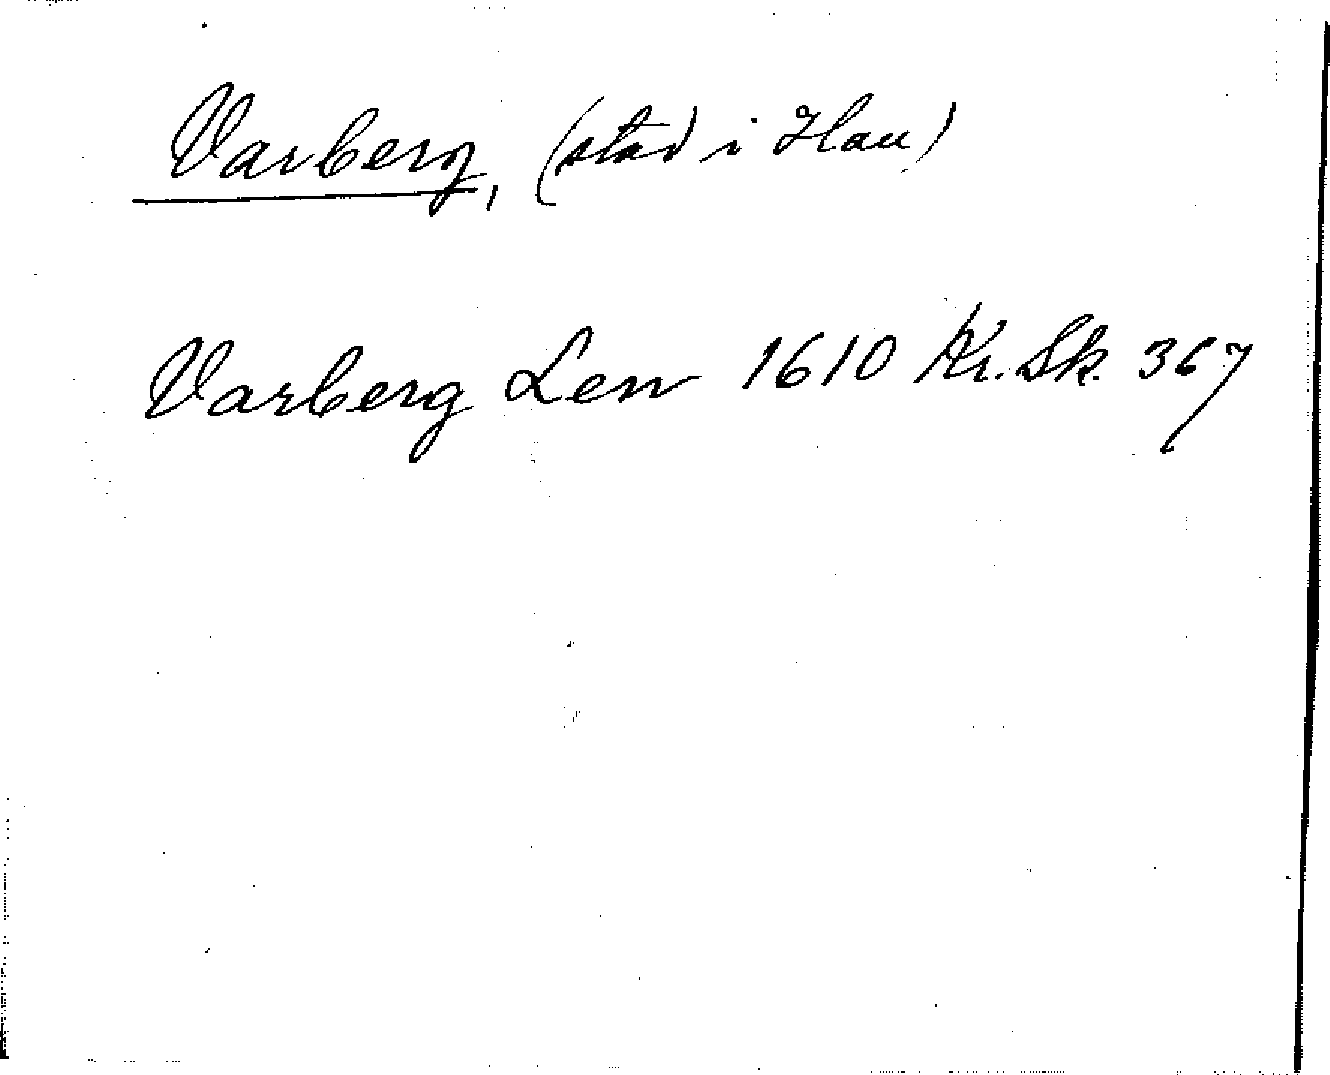 Varberg, (stad i Hall)
Varberg Len 1610 Kr. Sk. 367